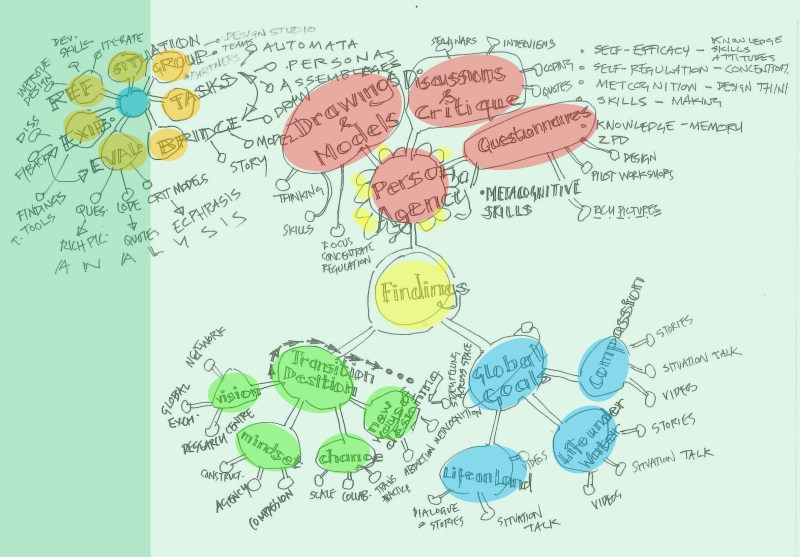 DEV.
SKILLS
ITERATE
SITUATION
GROUP
DESIGN STUDIO
TEAMS
PARTNERS
IMPROVE
DESIGN
REF
TASKS
AUTOMATA
PERSONAS
ASSEMBLAGES
DRAW
MODEL
STORY
BRIDGE
EXIB.
EVAL
DISS
FINDINGS
T. TOOLS
QUES.
CODE
CRIT MODELS
RICH PIC.
QUOTES
ECPHRASIS
ANALYSIS
Drawing
&
Models
THINKING
SKILLS
FOCUS
CONCENTRATE
REGULATION
SEMINARS
INTERVIEWS
Discussions
&
Critique
CODING
QUOTES
Questionnaires
DESIGN
PILOT WORKSHOPS
RICH PICTURES
• SELF-EFFICACY – KNOWLEDGE
SKILLS
ATTITUDES
• SELF-REGULATION – CONCENTION.
• METCOGNITION – DESIGN THINKI
• SKILLS – MAKING
• KNOWLEDGE – MEMORY
ZPD
Personal
Agency
• METACOGNITIVE
SKILLS
Findings
Transition
Desition
vision
NETWORK
GLOBAL
EXCH.
RESEARCH CENTRE
mindset
CONSTRUCT.
AGENCY
COMPASSION
change
SCALE
COLLAB.
TRANS
PRACTICE
new
ways of
designing
ABDUCTION
METACOGNITION
STORYTELLING
ACROSS SPACE
Global
Goals
Compassion
STORIES
SITUATION TALK
VIDEOS
Life under
Water
STORIES
SITUATION TALK
VIDEOS
Life on Land
DIALOGUE
& STORIES
SITUATION
TALK